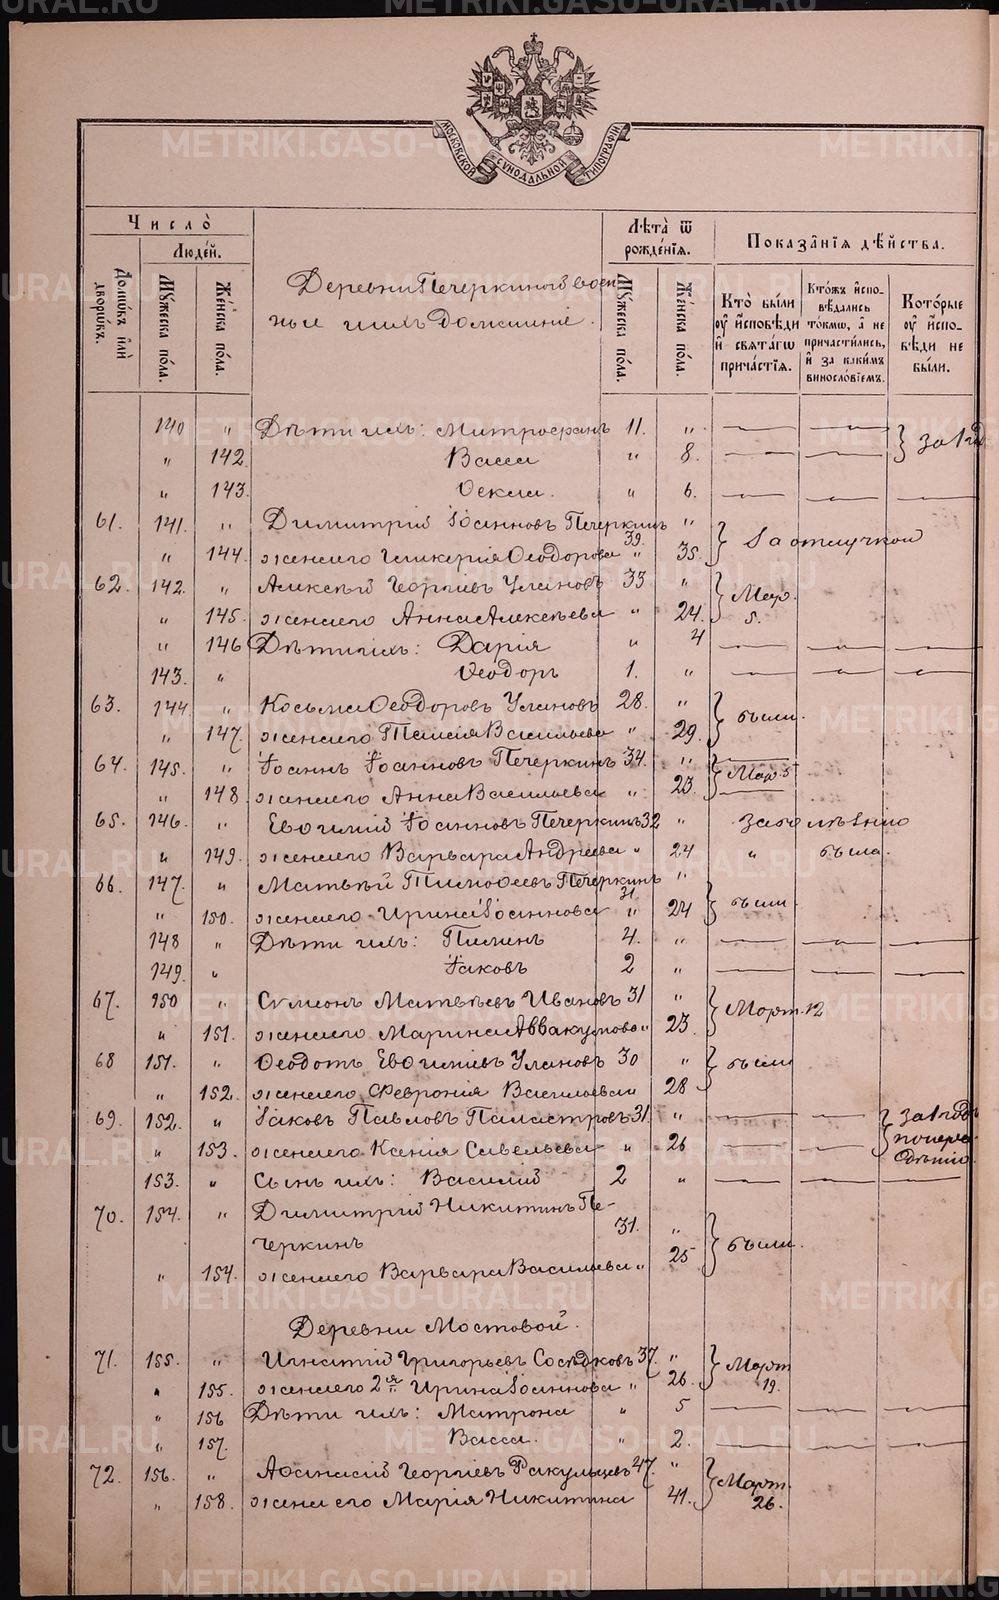 METRIKI.GASO-URAL.RU
МОСКОВСКОЙ СѴНОДАЛЬНОЙ ТИПОГРАФІИ
Число̀
Люде́й.
Домѡ́въ и҆лѝ дворѡ́въ.
Мꙋ́жеска по́ла.
Же́нска по́ла.
Деревни Печеркиной воен
ные и ихъ домашніе.
Лѣ́та ѿ рожде́нїѧ.
Мꙋ́жеска по́ла.
Же́нска по́ла.
Показа̑нїѧ дѣ́йства.
Кто̀ бы́ли оу҆ и҆сповѣ́ди и҆ свѧта́гѡ прича́стїѧ.
Кто́жъ и҆сповѣ́дались то́кмѡ, а҆ не причасти́лись, и҆ за каки́мъ винослові́емъ.
Кото́рые оу҆ и҆сповѣ́ди не бы́ли.
140 " Дѣти ихъ: Митрофанъ 11. " за 1 год
" 142. Васса " 8.
" 143. Ѳекла. " 6.
61. 141. " Димитрій Іоанновъ Печеркинъ 39. "
" 144. жена его Гликерія Ѳеодорова " 35. За отлучкой
62. 142. " Алексѣй Георгіевъ Улановъ 33 " Мар.
" 145. жена его Анна Алексѣева " 24. 5.
" 146 Дѣти ихъ: Дарія " 4
143. " Ѳеодоръ 1. "
63. 144. " Косьма Ѳеодоровъ Улановъ 28. " были.
" 147. жена его Таисія Васильева " 29.
64. 145. " Іоаннъ Іоанновъ Печеркинъ 34. " Мар 5
" 148. жена его Анна Васильева " 23.
65. 146. " Евѳимій Іоанновъ Печеркинъ 32 " за болѣзнію
" 149. жена его Варвара Андреева " 24 " была.
66. 147. " Матвѣй Тимоѳеевъ Печеркинъ 31 "
" 150. жена его Ирина Іоаннова " 24 были
148 " Дѣти ихъ: Пименъ 4. "
149. " Іаковъ 2 "
67. 150 " Сѵмеонъ Матвѣевъ Ивановъ 31 " Март. 12
" 151. жена его Марина Аввакумова " 23.
68 151. " Ѳеодотъ Евѳиміевъ Улановъ 30 " были
" 152. жена его Феврониія Васильева " 28
69. 152. " Іаковъ Павловъ Палистровъ 31. " за 1 годъ
" 153. жена его Ксенія Савельева " 26 понера
153. " Сынъ ихъ: Василій 2 " дѣнію.
70. 154. " Димитрій Никитинъ Пе-
черкинъ 31. " были.
" 154. жена его Варвара Васильева " 25
Деревни Мостовой.
71. 155. " Игнатій Григорьевъ Сосѣдковъ 37. " Март
" 155. жена его 2я Ирина Іоаннова " 26. 19.
" 156 Дѣти ихъ: Матрона " 5
" 157. Васса. " 2.
72. 156. " Аѳанасій Георгіевъ Ракульцевъ 47. " Март.
" 158. жена его Марія Никитина 41. 26.